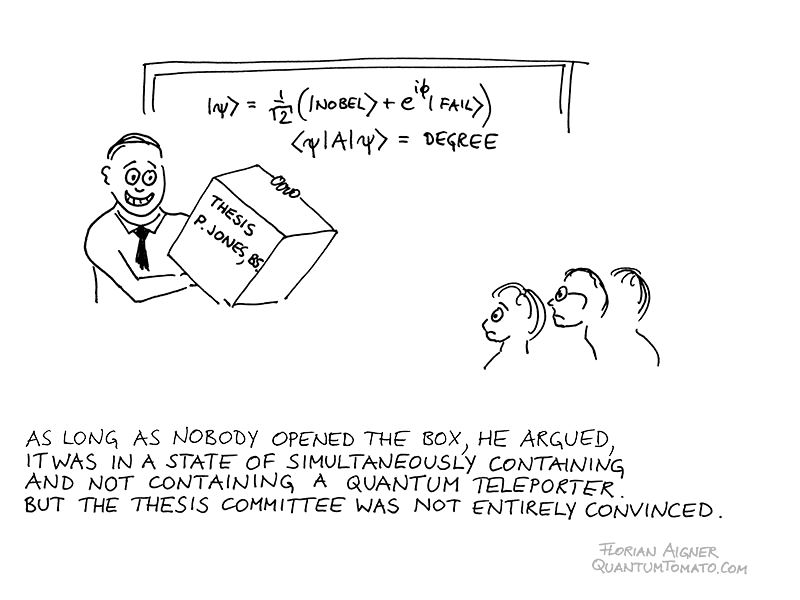 |ψ⟩ = 1/√2 (|NOBEL⟩ + e^{iϕ}|FAIL⟩)
⟨ψ|A|ψ⟩ = DEGREE
THESIS
P. JONES, BS.
AS LONG AS NOBODY OPENED THE BOX, HE ARGUED,
IT WAS IN A STATE OF SIMULTANEOUSLY CONTAINING
AND NOT CONTAINING A QUANTUM TELEPORTER.
BUT THE THESIS COMMITTEE WAS NOT ENTIRELY CONVINCED.
FLORIAN AIGNER
QUANTUMTOMATO.COM